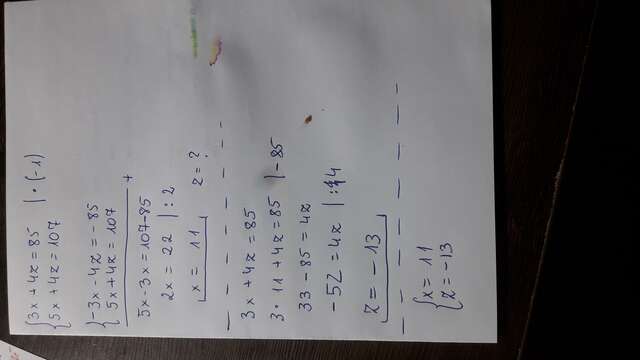 {3x + 4z = 85 | • (-1)
{5x + 4z = 107
{-3x - 4z = -85
{5x + 4z = 107 +
5x - 3x = 107 - 85
2x = 22 | : 2
x = 11 z = ?
3x + 4z = 85
3 • 11 + 4z = 85 | - 85
33 - 85 = 4z
- 52 = 4z | : 4
z = - 13
{x = 11
{z = -13